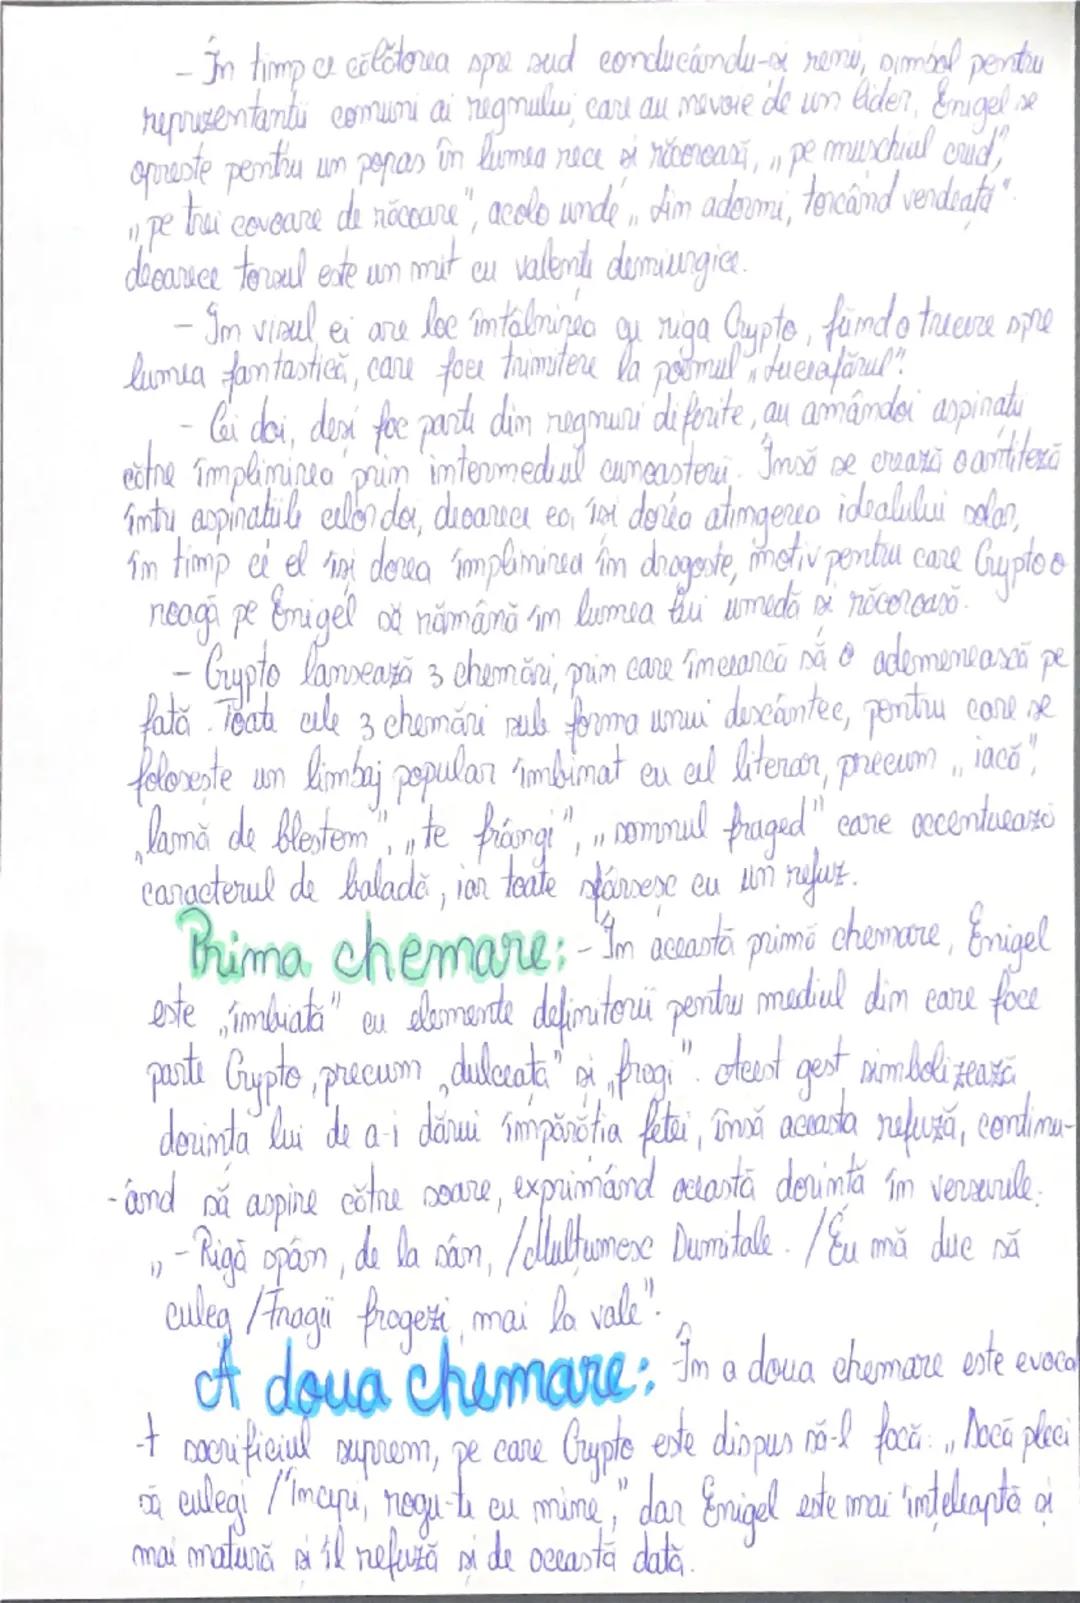 - În timp ce călătorea spre sud conducându-și renii, simbol pentru
reprezentanții comuni ai regnului, care au nevoie de un lider, Enigel se
oprește pentru un popas în lumea rece și răcoroasă, „pe mușchiul crud”,
„pe trei covoare de răcoare”, acolo unde „lin adormi, torcând verdeață”.
deoarece torsul este un mit cu valențe demiurgice.
- În visul ei are loc întâlnirea cu riga Crypto, fiind o trecere spre
lumea fantastică, care face trimitere la poemul „Luceafărul”.
- Cei doi, deși fac parte din regnuri diferite, au amândoi aspirații
către împlinirea prin intermediul cunoașterii. Însă se crează o antiteză
între aspirațiile celor doi, deoarece ea, își dorea atingerea idealului solar,
în timp ce el își dorea împlinirea în dragoste, motiv pentru care Crypto o
roagă pe Enigel să rămână în lumea lui umedă și răcoroasă.
- Crypto lansează 3 chemări, prin care încearcă să o ademenească pe
fată. Toate cele 3 chemări sub forma unui descântec, pentru care se
folosește un limbaj popular îmbinat cu cel literar, precum „iacă”,
„lamă de blestem”, „te frângi”, „somnul fraged” care accentuează
caracterul de baladă, iar toate sfârsesc cu un refuz.
Prima chemare: - În această primă chemare, Enigel
este „îmbiată” cu elemente definitorii pentru mediul din care face
parte Crypto, precum „dulceață” și „fragi”. Acest gest simbolizează
dorința lui de a-i dărui împărăția fetei, însă aceasta refuză, continu-
-ând să aspire către soare, exprimând această dorință în versurile:
„- Rigă spân, de la sân, / Mulțumesc Dumitale. / Eu mă duc să
culeg / Fragii fragezi, mai la vale”.
A doua chemare: În a doua chemare este evoca
-t sacrificiul suprem, pe care Crypto este dispus să-l facă: „Dacă pleci
să culegi / Începi, rogu-te cu mine,” dar Enigel este mai înțeleaptă și
mai matură și îl refuză și de această dată.